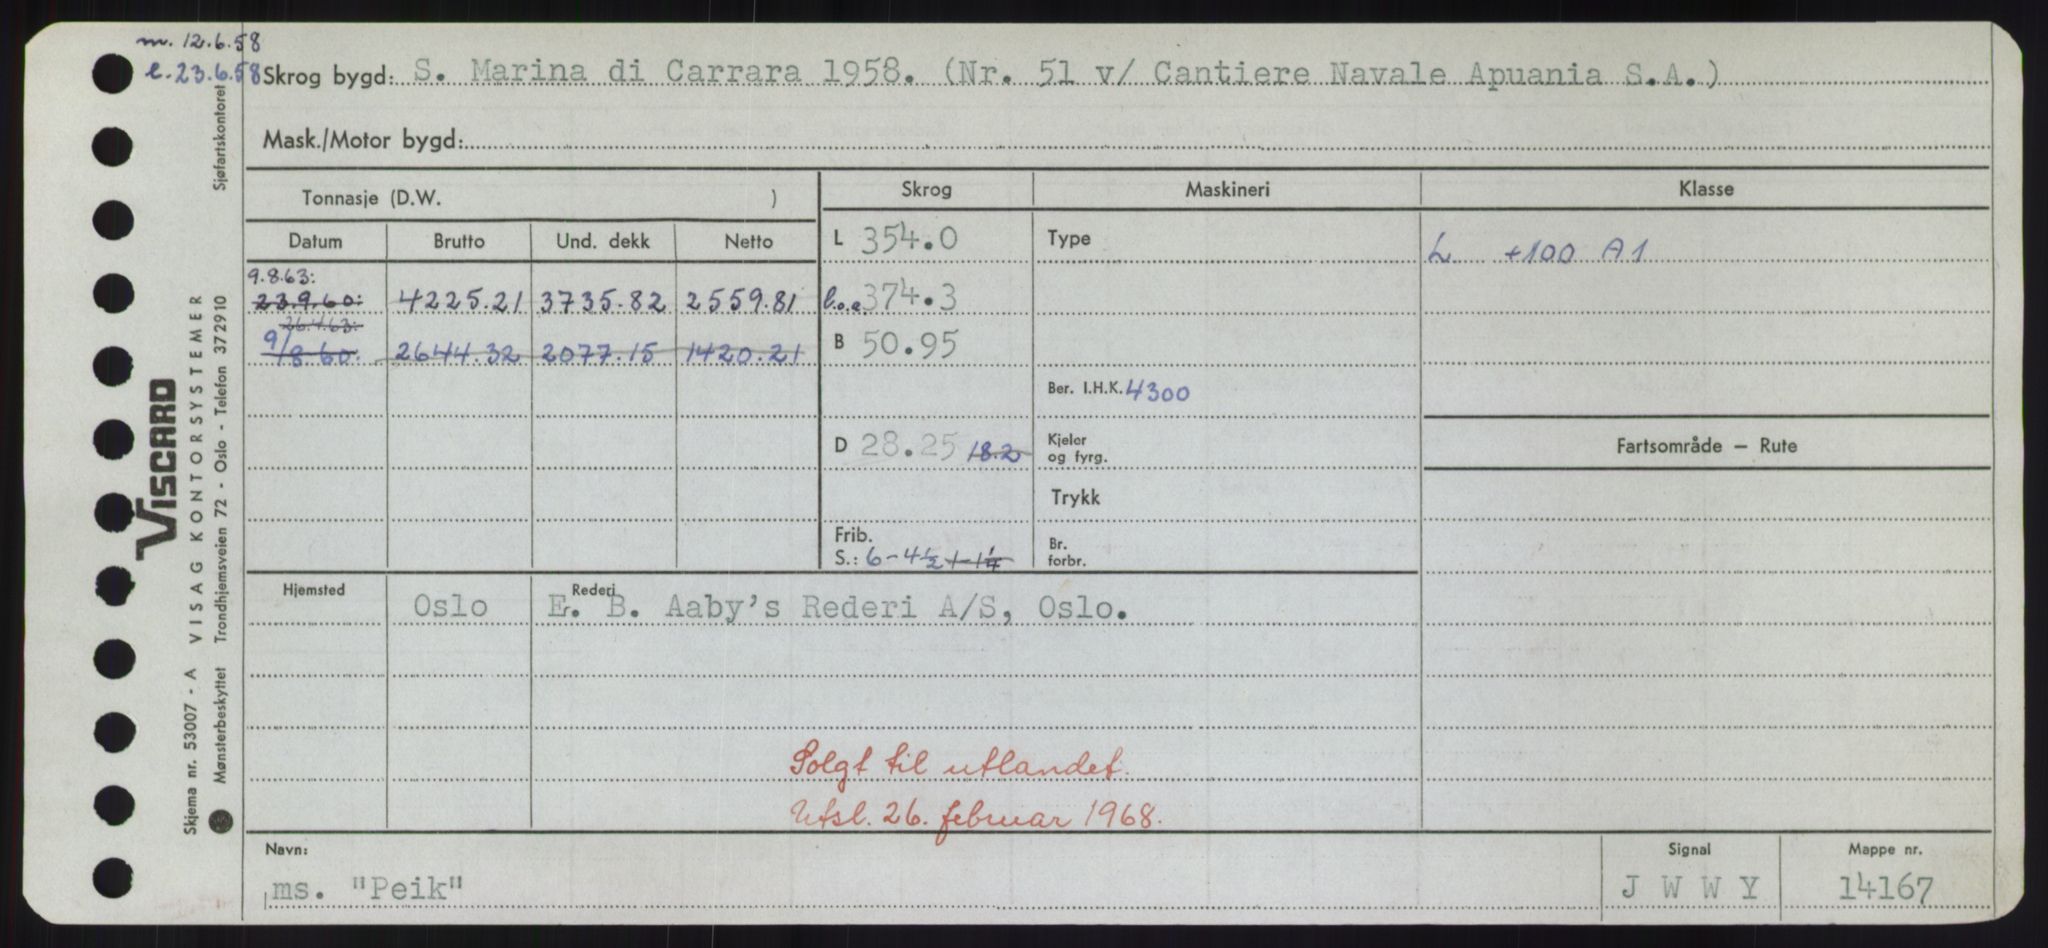 m. 12.6.58
l. 23.6.58
Skrog bygd: S. Marina di Carrara 1958. (Nr. 51 v/ Cantiere Navale Apuania S.A.)
Mask./Motor bygd:
Tonnasje (D.W. ) Skrog Maskineri Klasse
Datum Brutto Und. dekk Netto L 354.0 Type L +100 A1
9.8.63:
23.9.60: 4225.21 3735.82 2559.81 l.o.a. 374.3
26.4.63:
9/8 60: 2644.32 2077.15 1420.21 B 50.95
Ber. I.H.K. 4300
D 28.25 18.2 Kjeler
og fyrg.
Fartsområde — Rute
Trykk
Frib.
S.: 6-4½ 1-1¼
Br.
forbr.
Hjemsted Rederi
Oslo E. B. Aaby's Rederi A/S, Oslo.
Solgt til utlandet.
Utsl. 26. februar 1968.
Navn: Signal Mappe nr.
ms. "Peik" J W W Y 14167
VISCARD
VISAG KONTORSYSTEMER
Skjema nr. 53007 - A
Sjøfartskontoret
Trondhjemsveien 72 - Oslo - Telefon 372910
Mønsterbeskyttet